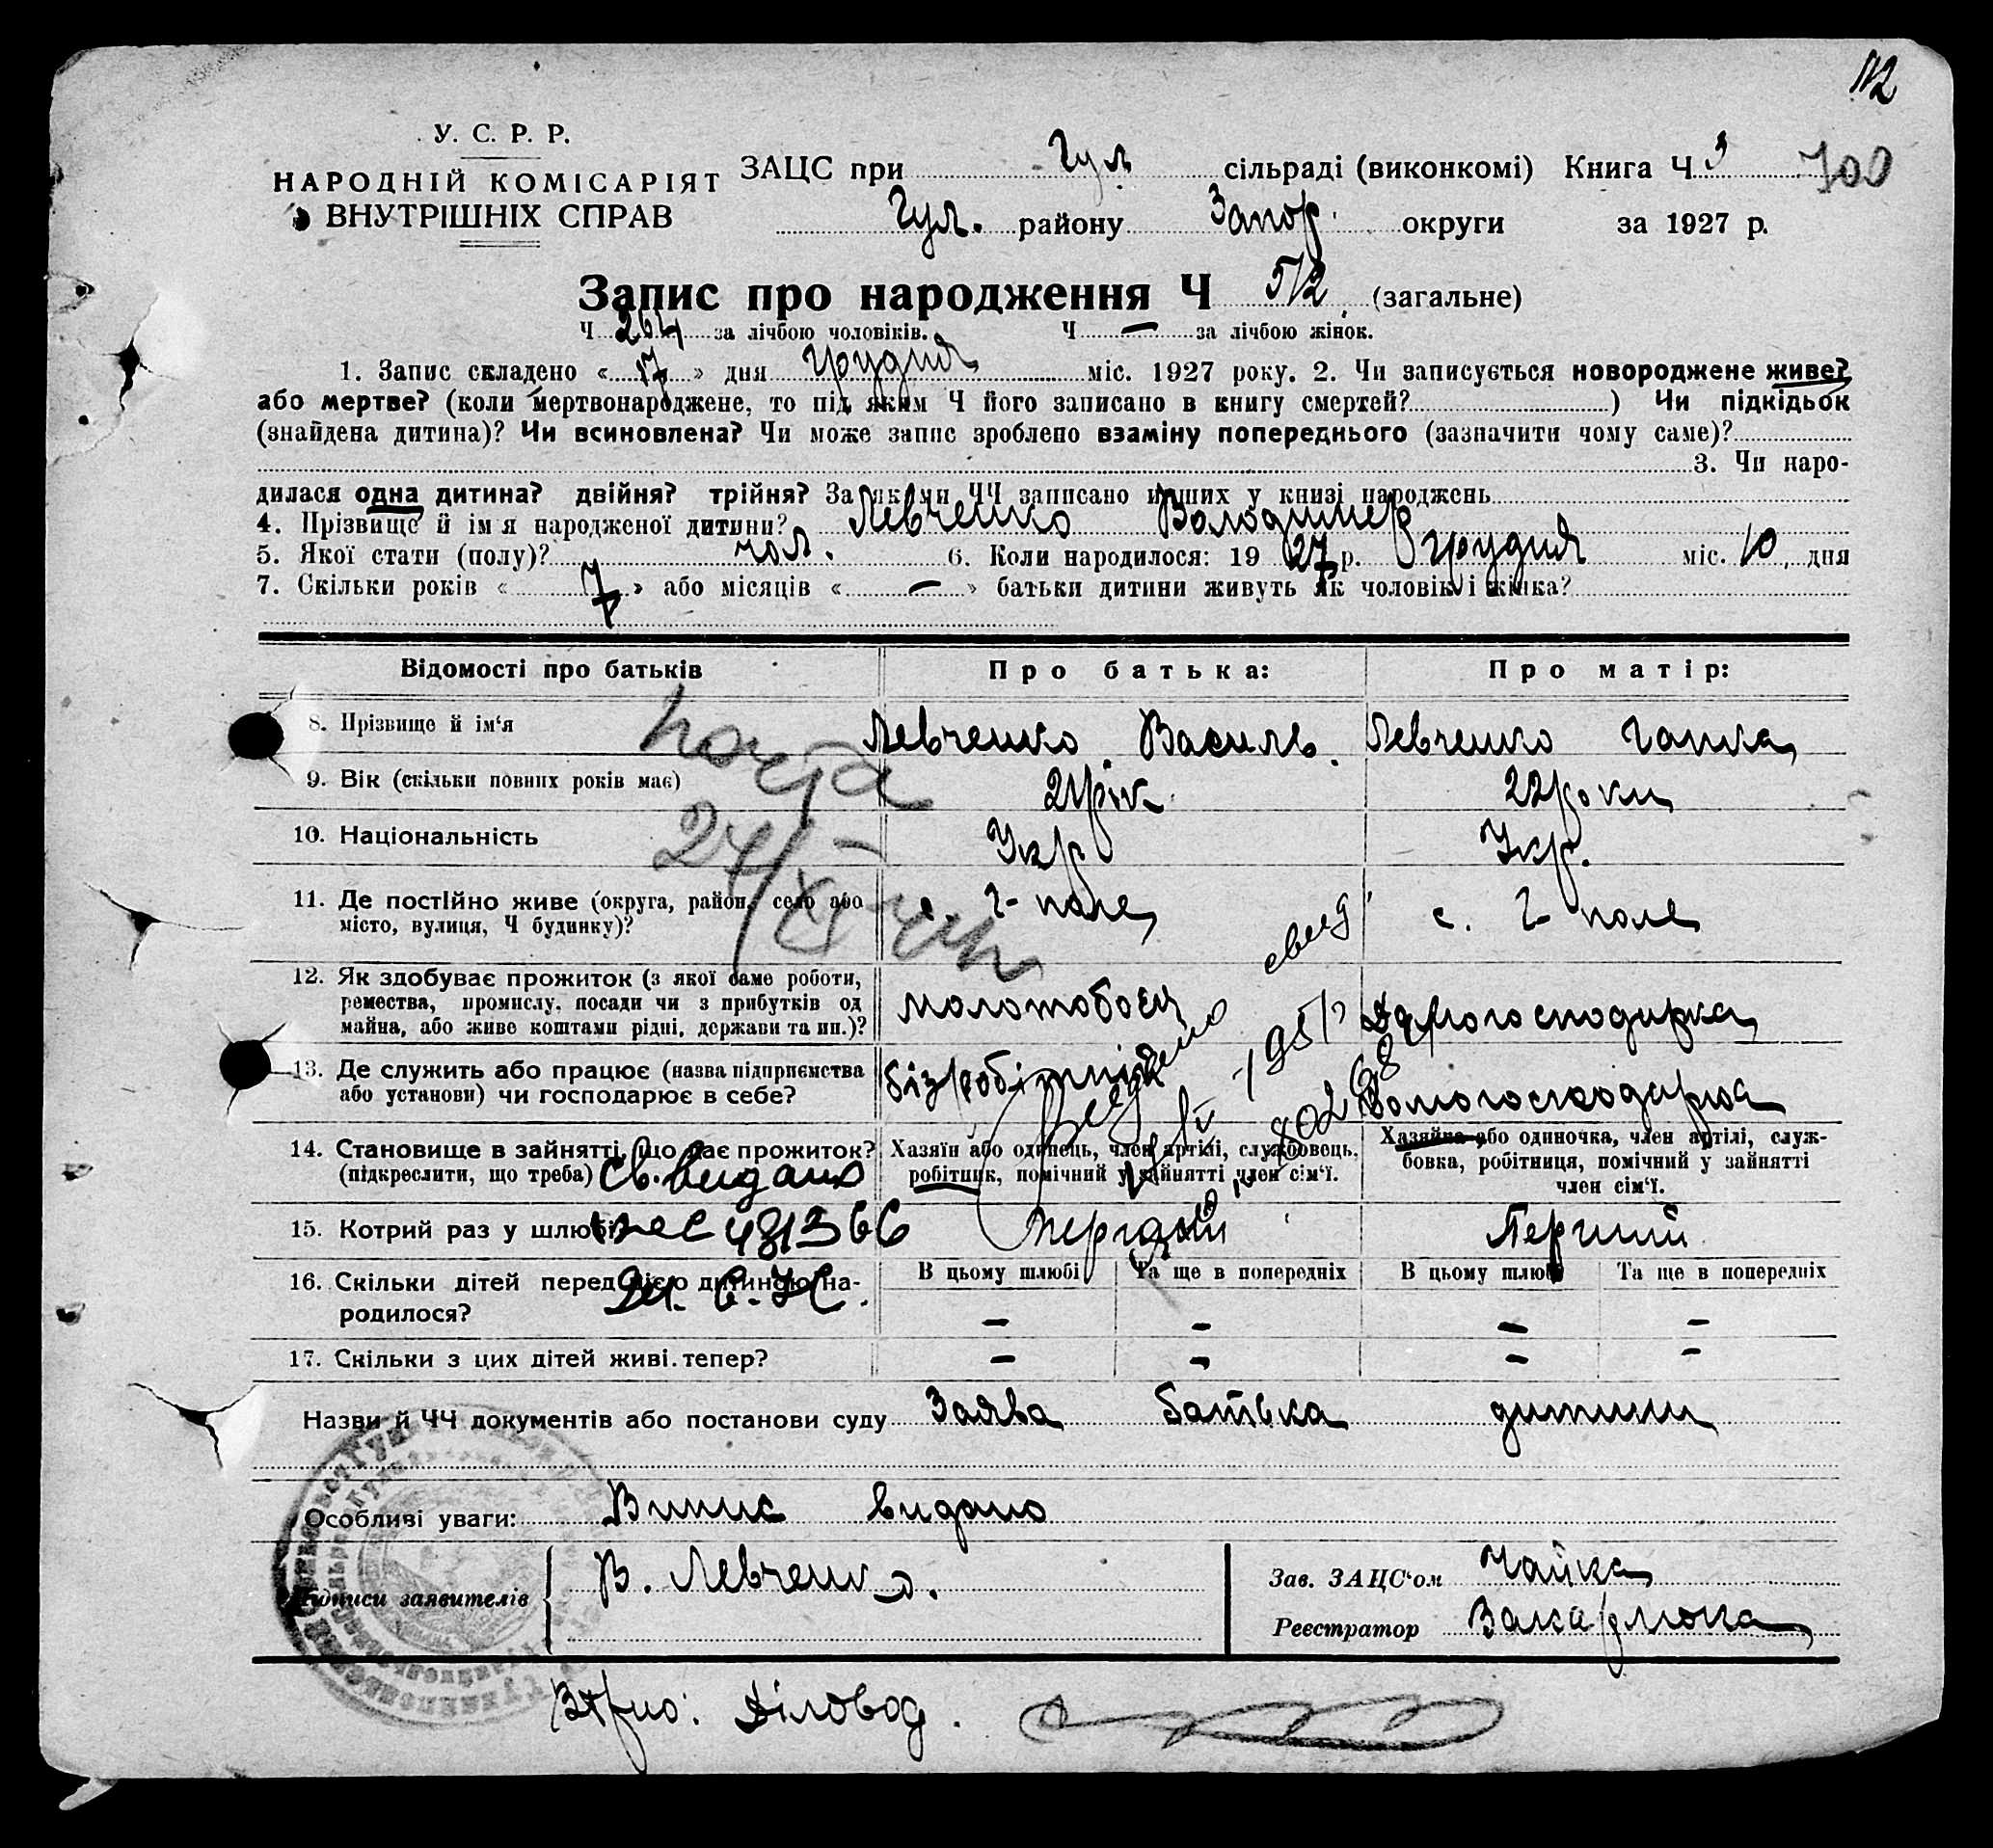 112
У. С. Р. Р.
НАРОДНІЙ КОМІСАРІЯТ
ВНУТРІШНІХ СПРАВ
ЗАЦС при Гул сільраді (виконкомі) Книга Ч 3 700
Гул. району Запор. округи за 1927 р.
Запис про народження Ч 512 (загальне)
Ч 264 за лічбою чоловіків. Ч — за лічбою жінок.
1. Запис складено « 17 » дня грудня міс. 1927 року. 2. Чи записується новороджене живе?
або мертве? (коли мертвонароджене, то під яким Ч його записано в книгу смертей? ) Чи підкідьок
(знайдена дитина)? Чи всиновлена? Чи може запис зроблено взаміну попереднього (зазначити чому саме)?
3. Чи наро-
дилася одна дитина? двійня? трійня? За якими ЧЧ записано инших у книзі народжень
4. Прізвище й ім'я народженої дитини? Левченко Володимер
5. Якої стати (полу)? чол. 6. Коли народилося: 19 27 р. грудня міс. 10 дня
7. Скільки років « 7 » або місяців « — » батьки дитини живуть як чоловік і жінка?
Відомості про батьків Про батька: Про матір:
8. Прізвище й ім'я Левченко Василь. Левченко Ганна
9. Вік (скільки повних років має) 21 рік. 22 роки
10. Національність Укр Укр.
11. Де постійно живе (округа, район, село або
місто, вулиця, Ч будинку)? с. Г-поле с. Г-поле
12. Як здобуває прожиток (з якої саме роботи,
ремества, промислу, посади чи з прибутків од
майна, або живе коштами рідні, держави та ин.)? молотобоєц Домогосподарка
13. Де служить або працює (назва підприємства
або установи) чи господарює в себе? безробітний Домогосподарка
14. Становище в зайнятті, що дає прожиток?
(підкреслити, що треба)
Хазяїн або одинець, член артілі, службовець,
робітник, помічний у зайнятті член сім'ї.
Хазяйка або одиночка, член артілі, служ-
бовка, робітниця, помічний у зайнятті
член сім'ї.
св. видано
481366
15. Котрий раз у шлюбі Перший Перший
16. Скільки дітей перед цією дитиною на-
родилося?
В цьому шлюбі Та ще в попередніх В цьому шлюбі Та ще в попередніх
— — — —
17. Скільки з цих дітей живі тепер? — — — —
Назви й ЧЧ документів або постанови суду Заява батька дитини
Особливі уваги: Випис видано
Підписи заявителів В. Левченко.
Зав. ЗАЦС'ом Чайка
Реєстратор
Вірно: Діловод.